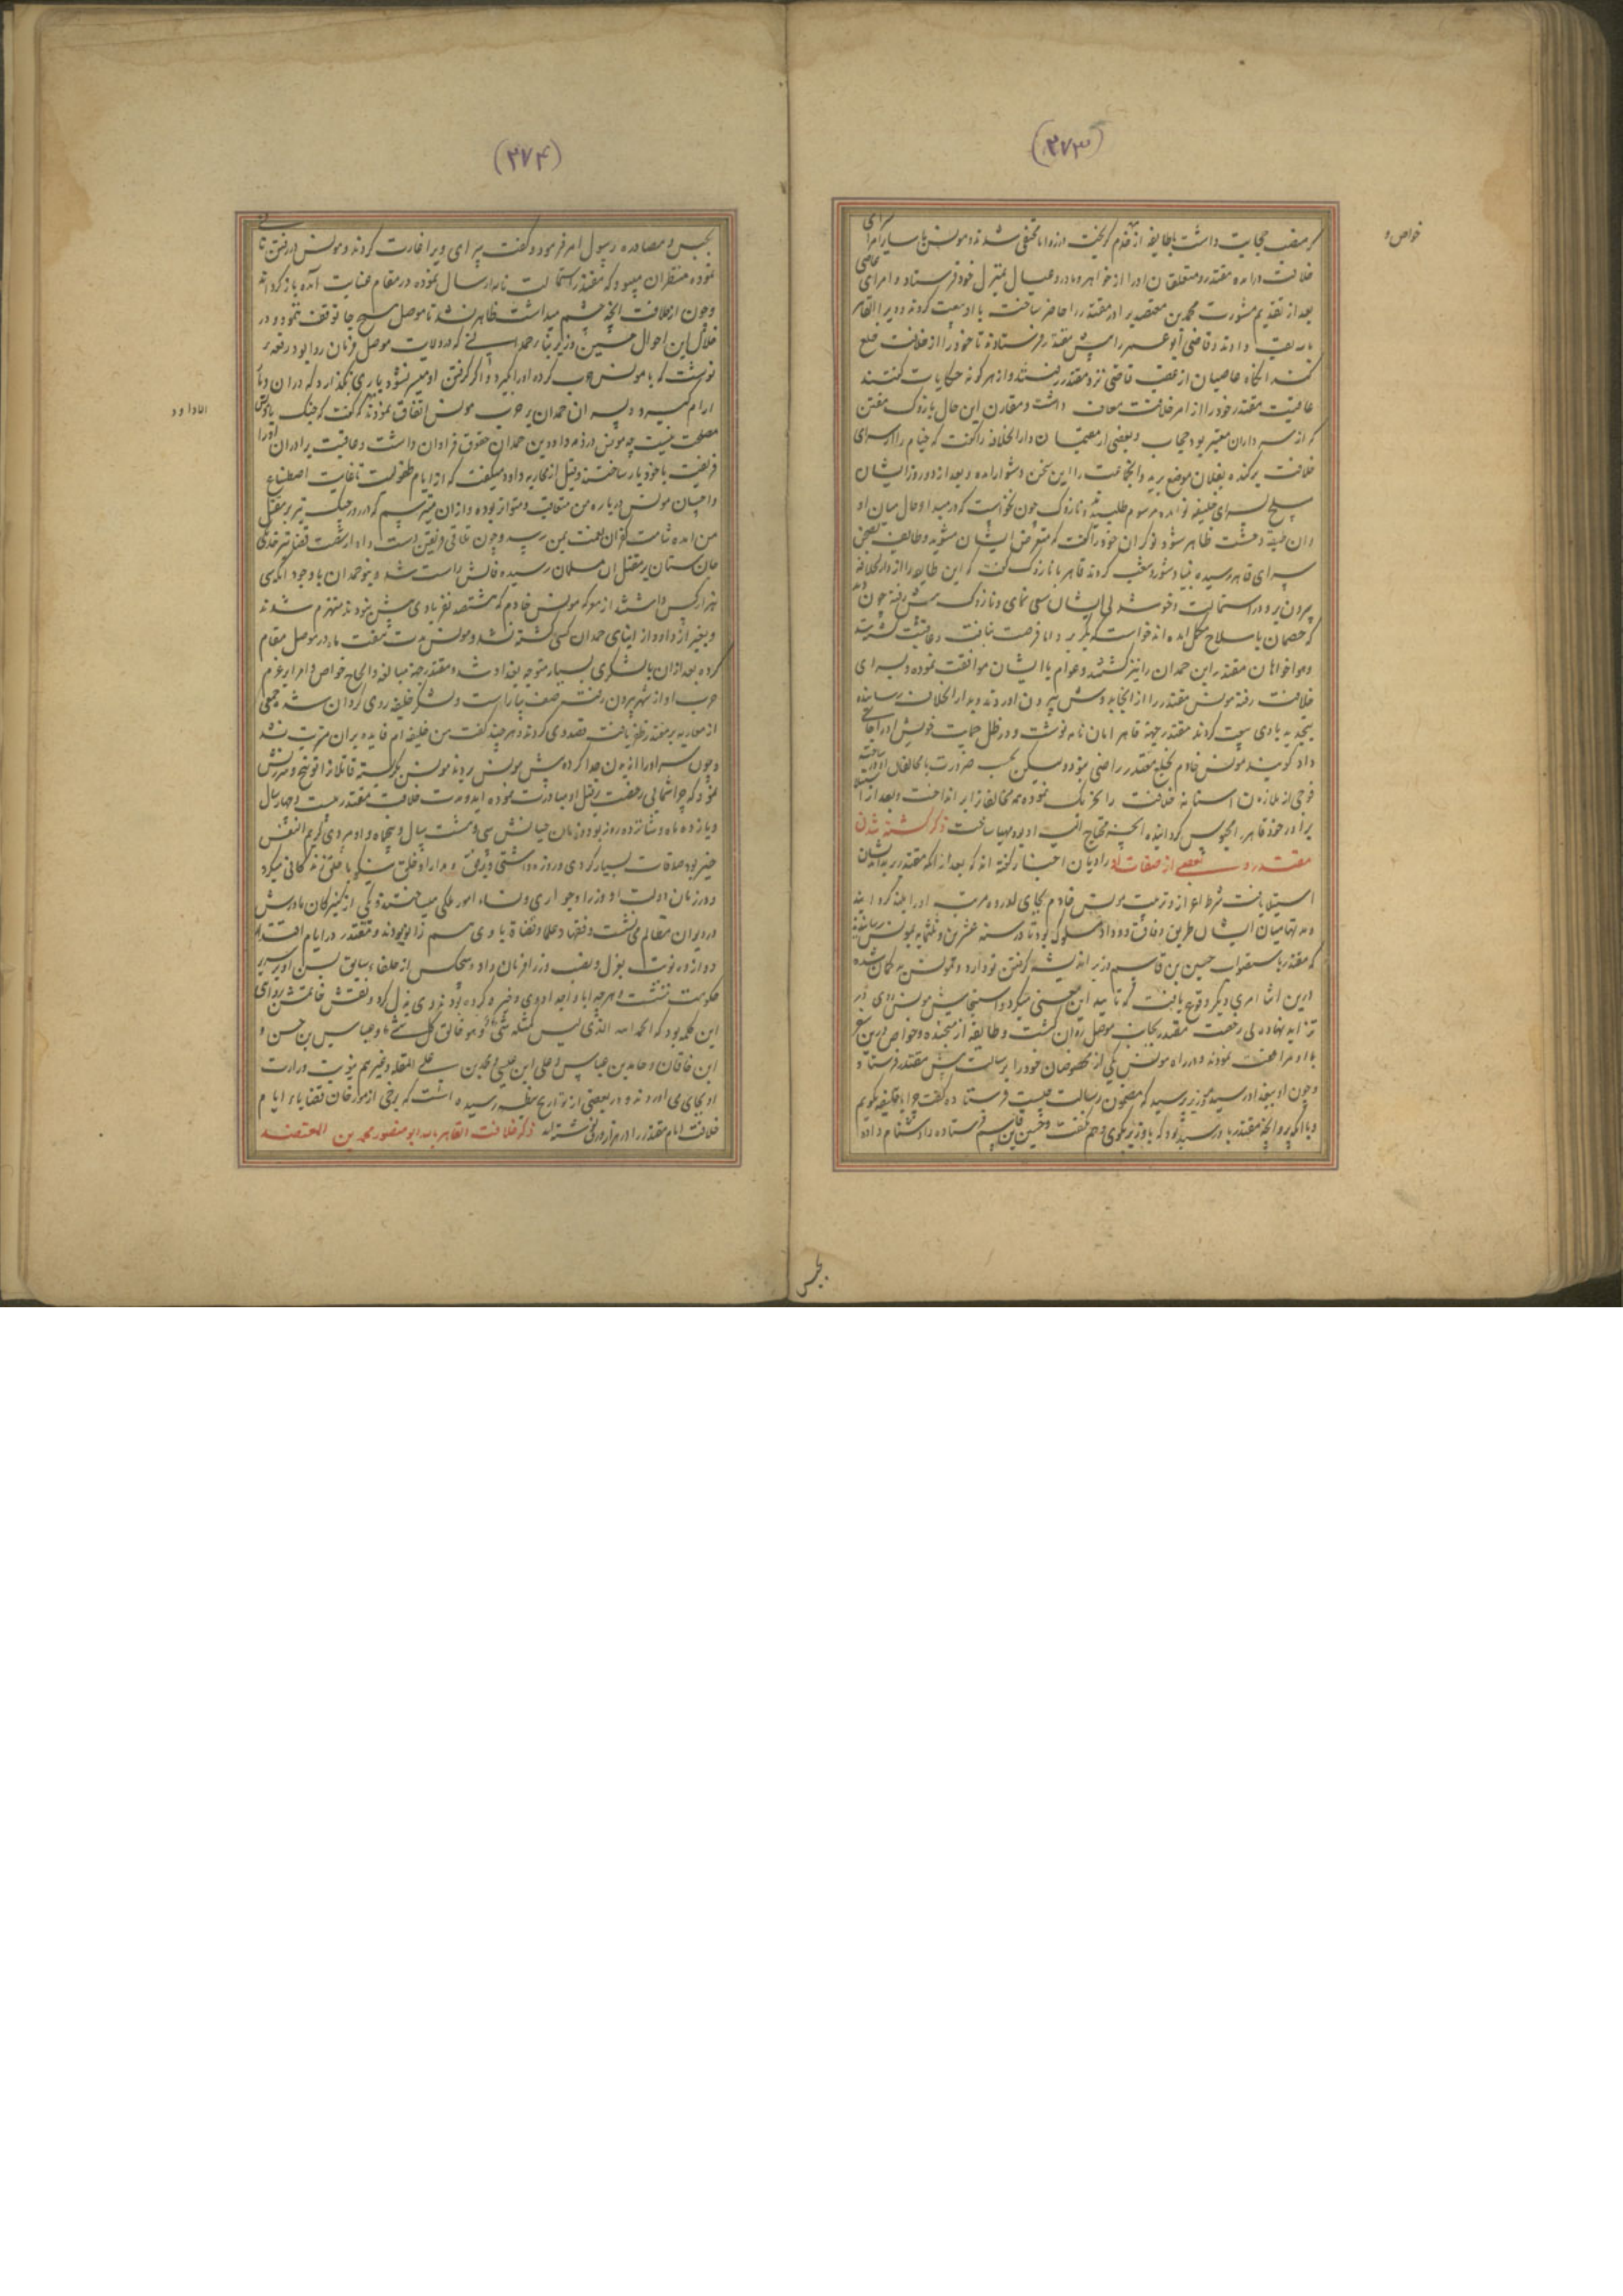 (۲۷۳)
خواص و
که منصب حجابت داشت با طایفه از خدم گریخت در زوایا مختفی شدند و مونس با سایر امرا بسرای
خلافت درآمده مقتدر و متعلقان او را از خواهر و مادر و عیال بمنزل خود فرستاد و امرای عاصی
بعد از تقدیم مشورت محمد بن معتضد برادر مقتدر را حاضر ساخت با او بیعت کردند و ویرا القاهر
بالله لقب دادند و قاضی ابو عمر را پیش مقتدر فرستادند تا خود را از خلافت خلع
کند آنگاه عاصیان از عقب قاضی نزد مقتدر رفتند و از هر گونه حکایات گفتند
عاقبت مقتدر خود را از امر خلافت معاف داشت و مقارن این حال نازوک مفتن
که از سرداران معتبر بود حجاب و بعضی از مقیمان دار الخلافه را گفت که خیام را از سرای
خلافت برکنده بفلان موضع برید و آنجماعت را این سخن دشوار آمده و بعد از دو روز ایشان
سلح بسرای خلیفه تو آمده مرسوم طلبیدند و نازوک چون نخواست که در مبدا حال میان او
و ان طبقه وحشت ظاهر شود نوکران خود را گفت که متعرض ایشان مشوید و طایفه
بسرای قاهر رسیده بنیاد شور و شغب کردند قاهر با نازوک گفت که این طایفه را از دار الخلافه
بیرون بر و در استمالت و خوشدلی ایشان سعی نمای و نازوک پیش رفته چون دید
که خصمان با سلاح مکمل آمده اند خواست که بگریزد اما فرصت نیافت و عاقبت کشته شد
و هواخواهان مقتدر ابن حمدان را نیز کشتند و عوام با ایشان موافقت نموده و بسرای
خلافت رفته مونس مقتدر را از آنجا بدوش بیرون آوردند و بدار الخلافت رسانیده
بتجدید با وی بیعت کردند مقتدر جهة قاهر امان نامه نوشت و در ظل حمایت خویش او را جای
داد گویند مونس خادم بخلع مقتدر راضی نبود و لیکن بحسب ضرورت با مخالفان
فوجی از ملازمان آستانه خلافت را تحریک نموده همه مخالفان را بر انداخت و بعد از
برادر خود قاهر را محبوس گردانیده آنچه محتاج الیه او بود مهیا ساخت ذکر کشته شدن
مقتدر و بعضی از صفات او راویان اخبار گفته اند که بعد از آنکه مقتدر بر بداندیشان
استیلا یافت شرط اعزاز و تربیت مونس خادم بجای آورده مرتبه او را بلند گردانید
و مدتها میان ایشان طریق وفاق و وداد مسلوک بود تا در سنه عشرین و ثلثمایه بمونس رسانیدند
که مقتدر باستصواب حسین بن قاسم وزیر اندیشه گرفتن تو دارد و مونس بدگمان شده
درین اثنا امری دیگر وقوع یافت که تایید این معنی میکرد و استیحاش مونس روی در
تزاید نهاده بی رخصت مقتدر بجانب موصل روان گشت و طایفه از سنجیده و خواص درین سفر
با او مرافقت نمودند و در راه مونس یکی از مخصوصان خود را برسالت پیش مقتدر فرستاد و
و چون او ببغداد رسید وزیر پرسید که مضمون رسالت چیست فرستاده گفت جز با خلیفه نگویم
و با آنکه پروانچه مقتدر باو رسید بود که با وزیر بگوی و هم نگفت و حسین قاسم فرستاده را دشنام داده
بحبس
(۲۷۴)
بحبس و مصادره رسول امر فرمود و گفت سرای ویرا غارت کردند و مونس در رفتن تانی
نموده منتظر آن میبود که مقتدر استمالت نامه ارسال نموده در مقام عنایت آمده بازگرداند
و چون از خلافت آنچه چشم میداشت ظاهر نشد تا موصل هیچ جا توقف ننمود و در
خلال این احوال حسین وزیر بنابر حمدانی که در ولایت موصل فرمان روا بود رقعه
نوشت که با مونس حرب کرده او را بگیرد و اگر گرفتن او میسر نشود باری نگذارد که در آن دیار
آرام گیرد و پسران حمدان بر حرب مونس اتفاق نمودند گفت که جنگ با مونس
الا داود
مصلحت نیست چه مونس در ذمه داود بن حمدان حقوق فراوان داشت و عاقبت برادران او را
فریفته با خود یار ساختند و قبل از محاربه داود میگفت که از ایام طفولیت تا غایت اصطناع
و احسان مونس درباره من متعاقب و متواتر بوده و از آن میترسم که در روز جنگ تیر بر مقتل
من آمده شامت کفران نعمت بمن رسد و چون تلاقی فریقین دست داد از شست قضا تیر خدنگ
جان ستان بر مقتل آن مسلمان رسیده فالش راست شد و بنو حمدان با وجود آنکه سی
هزار کس داشتند از معرکه مونس خادم که هشتصد نفر با وی بیش نبودند منهزم شدند
و بغیر از داود از ابنای حمدان کسی کشته نشد و مونس مدت هفت ماه در موصل مقام
کرده بعد از آن با لشکری بسیار متوجه بغداد شد و مقتدر جهة مبالغه و الحاح خواص و امرا بر عزم
حرب او از شهر بیرون رفته صف بیاراست و لشکر خلیفه روی گردان شد جمعی
از مغاربه بر مقتدر ظفر یافته قصد وی کردند و هر چند گفت من خلیفه ام فایده بر آن مترتب نشد
و چون سر او را از بدن جدا کرده پیش مونس بردند مونس بگریست قاتلان را توبیخ و سرزنش
نمود که چرا شما بی رخصت بقتل او مبادرت نموده اید و مدت خلافت مقتدر بیست و چهار سال
و یازده ماه و شانزده روز بود و زمان حیاتش سی و هشت سال و پنجاه و او مردی کریم النفس
خیر بود صدقات بسیار کردی و روزه داشتی و برفق و مدارا و خلق نیکو با خلق زندگانی میکرد
و در زمان دولت او وزرا و جواری و نساء امور ملکی میساختند و یکی از کنیزکان مادرش
در دیوان مظالم می نشست و فقها و علما و قضاة با وی هم زانو بودند و مقتدر در ایام اقتدار
دوازده نوبت بعزل و نصب وزرا فرمان داد و هیچکس از خلفاء سابق بسن او بر سریر
حکومت ننشست و هر چه آبا و اجداد وی ذخیره کرده بودند وی بذل کرد و نقش خاتمش
این کلمه بود که الحمد لله الذی لیس کمثله شی و هو خالق کل شی و عباس بن حسن و
ابن خاقان و حامد بن عباس و علی ابن عیسی و محمد بن علی المقله و غیرهم بنوبت وزارت
او بجای می آوردند و در بعضی از تواریخ بنظر رسیده است که برخی از مورخان قضایاء ایام
خلافت امام مقتدر را در هزار ورق نوشته اند ذکر خلافت القاهر بالله ابو منصور محمد بن المعتضد